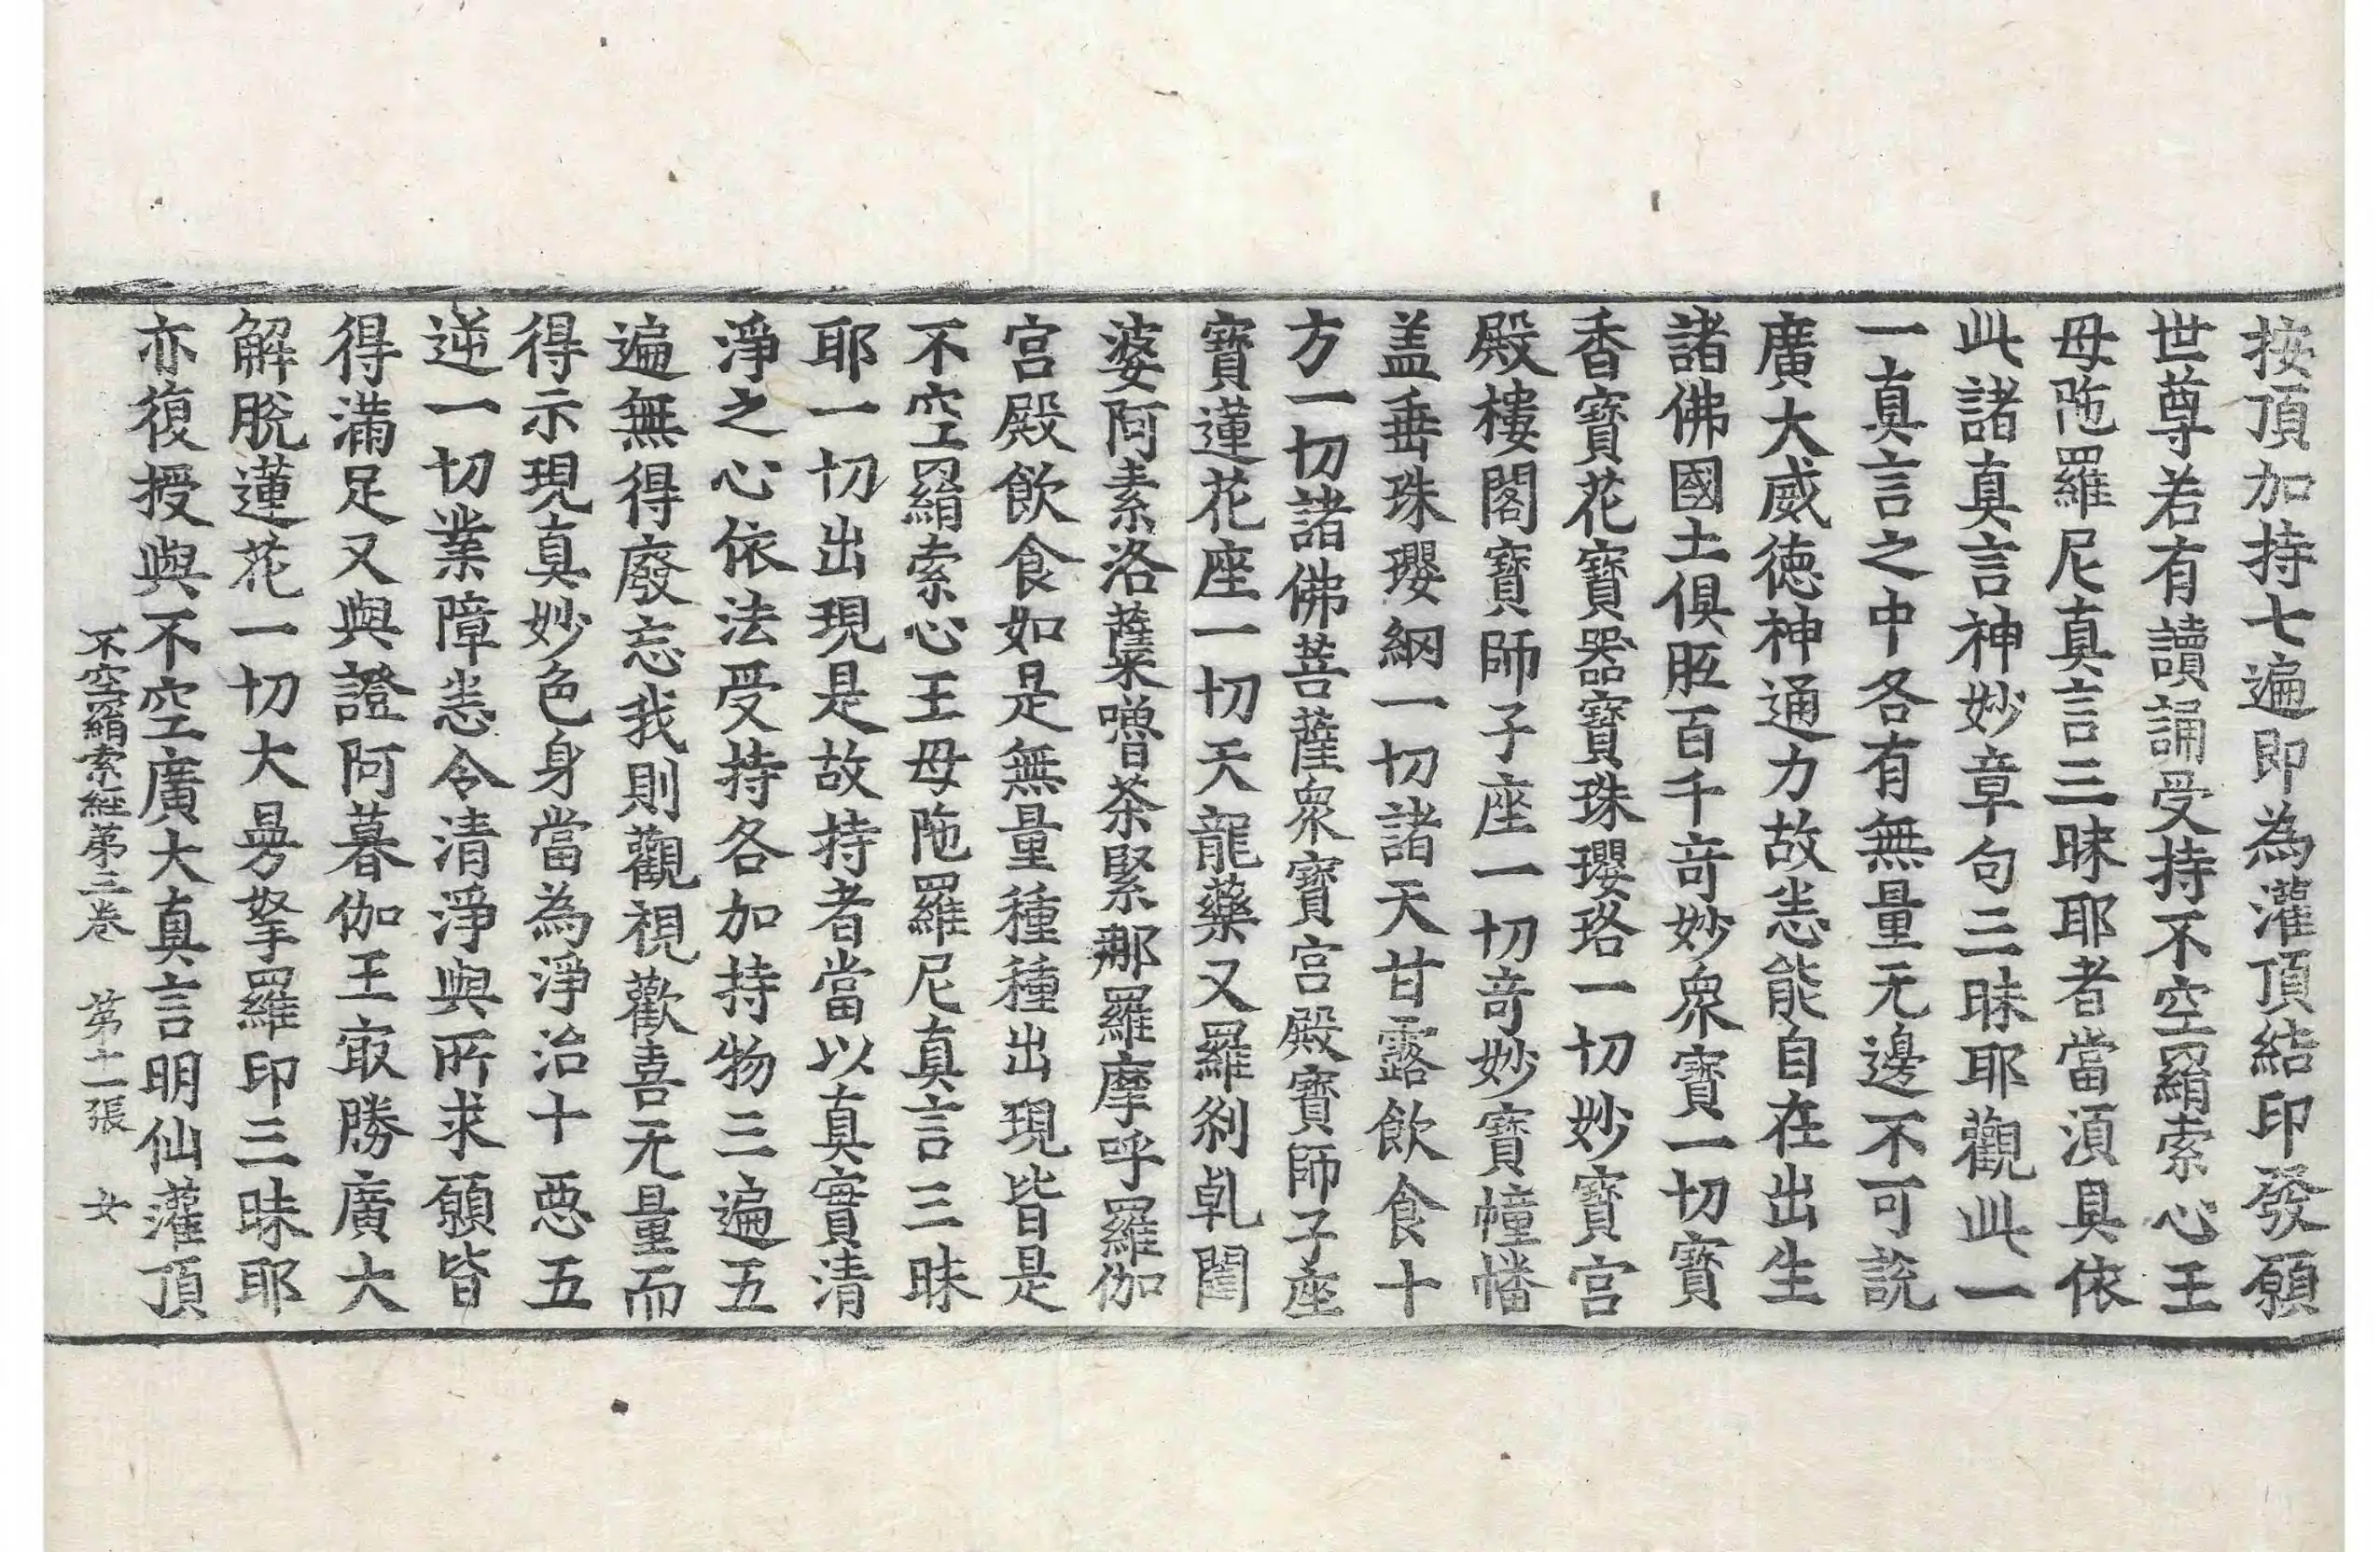 按頂加持七遍即為灌頂結印發願
世尊若有讀誦受持不空羂索心王
母陁羅尼真言三昧耶者當湏具依
此諸真言神妙章句三昧耶觀此一
一真言之中各有無量无邊不可說
廣大威徳神通力故恙能自在出生
諸佛國土俱胝百千竒妙衆寶一切寳
香寶花寶器寶珠瓔珞一切妙寶宫
殿樓閣寶師子座一切竒妙寶幢幡
盖垂珠瓔網一切諸天甘露飲食十
方一切諸佛菩薩衆寶宫殿寶師子座
寶蓮花座一切天龍藥叉羅剎乹闥
婆阿素洛蘖嚕荼緊那羅摩呼羅伽
宫殿飲食如是無量種種出現皆是
不空羂索心王母陁羅尼真言三昧
耶一切出現是故持者當以真實清
淨之心依法受持各加持物三遍五
遍無得廢忘我則觀視歡喜无量而
得示現真妙色身當為淨治十惡五
逆一切業障恙令清淨與所求願皆
得滿足又與證阿暮伽王㝡勝廣大
解脫蓮花一切大曼拏羅印三昧耶
亦復授與不空廣大真言明仙灌頂
不空羂索経苐三卷 苐十二張 女